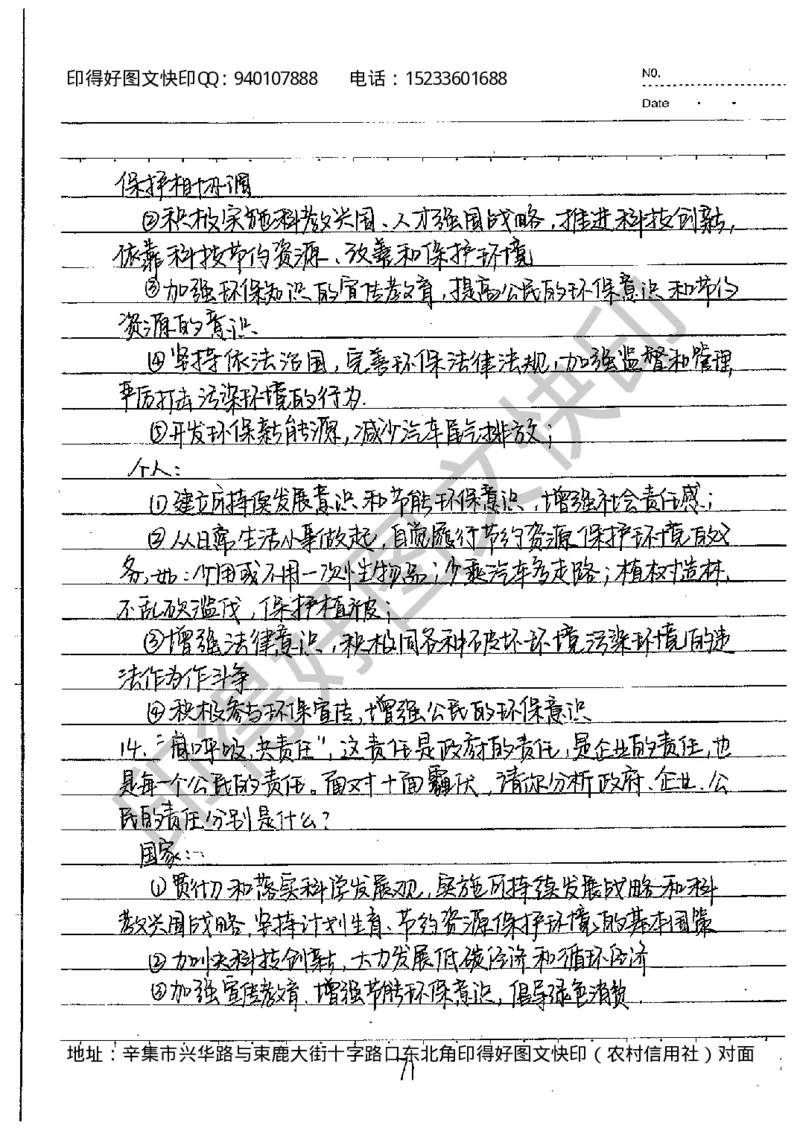 印得好图文快印QQ：940107888 电话：15233601688
NO.
Date
保护相协调
②积极实施科教兴国、人才强国战略，推进科技创新，
依靠科技节约资源、改善和保护环境
③加强环保知识的宣传教育，提高公民的环保意识和节约
资源的意识
④坚持依法治国，完善环保法律法规，加强监督和管理，
严厉打击污染环境的行为.
⑤开发环保新能源，减少汽车尾气排放；
个人：
①建立可持续发展意识和节能环保意识，增强社会责任感；
②从日常生活小事做起，自觉履行节约资源保护环境的义
务.如：少用或不用一次性物品；少乘汽车多走路；植树造林，
不乱砍滥伐，保护植被；
③增强法律意识，积极同各种破坏环境污染环境的违
法作为作斗争
④积极参与环保宣传，增强公民的环保意识
14.“同呼吸，共责任”，这责任是政府的责任，是企业的责任，也
是每一个公民的责任。面对十面霾伏，请你分析政府、企业、公
民的责任分别是什么？
国家：
①贯彻和落实科学发展观，实施可持续发展战略和科
教兴国战略，坚持计划生育、节约资源保护环境的基本国策
②加快科技创新，大力发展低碳经济和循环经济
③加强宣传教育，增强节能环保意识，倡导绿色消费.
地址：辛集市兴华路与束鹿大街十字路口东北角印得好图文快印（农村信用社）对面
71
印得好图文快印